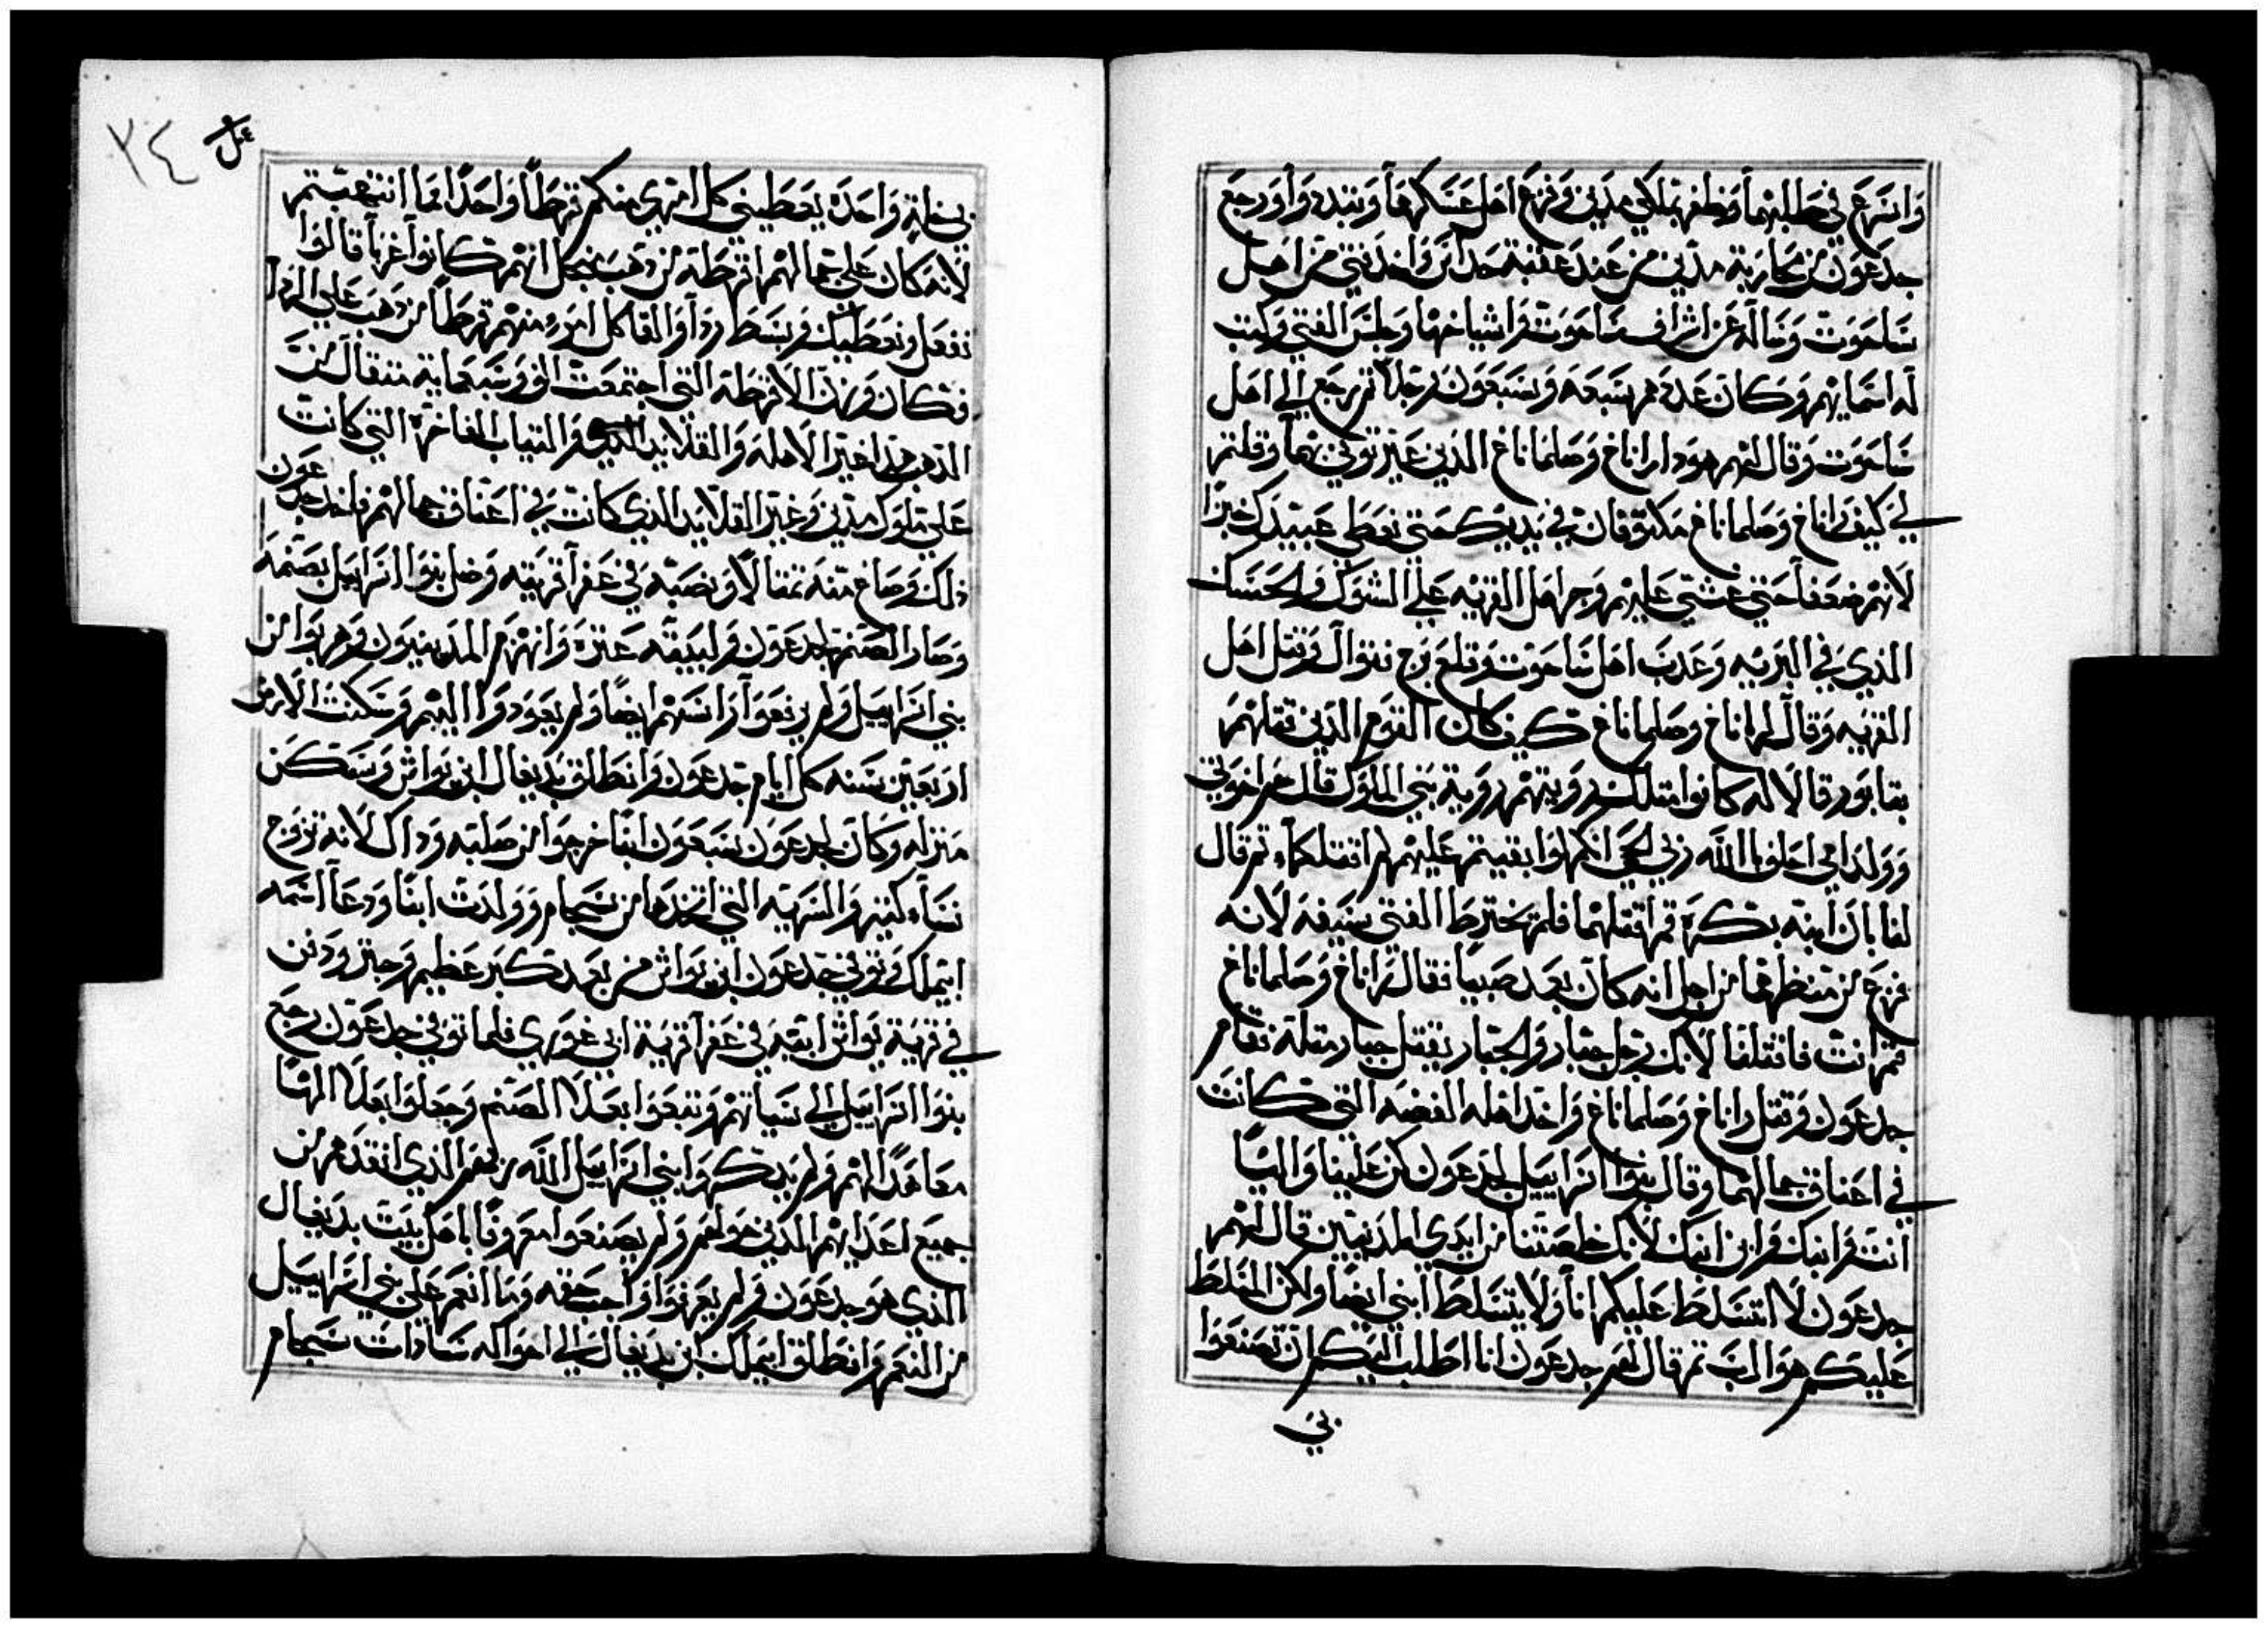 واسرع في طلبهما وظفر بملكي مدين وفزع اهل عسكرهما وتبددوا ورجع
جدعون من محاربة مدين من عند عقبة حداس واخذ فتى من اهل
ساحوت وساله عن اشراف ساحوت واشياخها وجلس الفتى وكتب
له اسمايهم وكان عددهم سبعة وسبعون رجلا ثم رجع الى اهل
ساحوت وقال لهم هوذا راناخ وصلماناخ الذين عيرتوني بهما وقلتم
لي كيف راناخ وصلماناخ مكتوفان في يديك حتى نعطي عبيدك خبزا
لانهم ضعفا حتى غشي عليهم وجر اهل القريه على الشوك والحسك
الذي في البريه وعذب اهل ساحوت وقلع برج فنوال وقتل اهل
القريه وقال لراناخ وصلماناخ كيف كان القوم الذين قتلتهم
بتابور قالا له كانوا مثلك رويتهم روية بني الملوك قال هم اخوتي
وولد امي احلف بالله ربي الحي انكم لوا بقيتم عليهم لم اقتلكما ثم قال
لفا بان ابنه بكره قم اقتلهما فلم يخترط الفتى سيفه لانه
فزع من منظرهما من اجل انه كان بعد صبيا فقال راناخ وصلماناخ
قم انت فاقتلنا لانك رجل جبار والجبار يقتل جبار مثله فقام
جدعون وقتل راناخ وصلماناخ واخذ اهله الفضه التي كانت
في اعناق جمالهما وقال بنوا اسراييل لجدعون كن علينا واليا
انت وابنك وابن ابنك لانك خلصتنا من ايدي المدينيين قال لهم
جدعون لا اتسلط عليكم انا ولا يتسلط ابني ايضا ولكن المسلط
عليكم هو الرب ثم قال لهم جدعون انا اطلب اليكم ان تصنعوا
بي
٣٤
بي خلة واحدة يعطيني كل امري منكم قرطا واحدا مما انتهبتم
لانه كان على جمالهم اقرطة من ذهب من اجل انهم كانوا اعربا قالوا
نفعل ونعطيك وبسط رداوالقا كل امرء منهم قرطا من ذهب على الردا
فكان وزن الاقرطه التي اجتمعت الف وسبعماية مثقال من
الذهب هذا غير الاهله والقلايد والثياب الفاخره التي كانت
على ملوك مدين وغير القلايد الذي كانت في اعناق جمالهم فاخذ جدعون
ذلك وصاغ منه تمثالا ونصبه في عفرا قريته وضل بنوا اسراييل بصنمه
وصار الصنم لجدعون ولبيته عثرة وانهزم المدينيون وهربوا من
بني اسراييل ولم يرفعوا راسهم ايضا ولم يعودوا اليهم وسكنت الارض
اربعين سنه كل ايام جدعون وانطلق يديغال ابن يواش وسكن
منزله وكان لجدعون سبعون ابنا خرجوا من صلبه وذاك لانه تزوج
نساء كثيره والسريه التي اتخذها من سجام وولدت ابنا ودعا اسمه
ابتملك وتوفي جدعون ابن يواش من بعد كبر عظيم وجبر ودفن
في قرية يواش ابيه في عفرا قرية ابي غوري فلما توفي جدعون رجع
بنوا اسراييل الى سياتهم وتبعوا بعلا الصنم وجعلوا بعلا الها
معاهدا لهم ولم يذكروا بني اسراييل الله ربهم الذي انقذهم من
جميع اعدايهم الذين حولهم ولم يصنعوا معروفا باهل بيت يديغال
الذي هو جدعون ولم يعرفوا واجب حقه وما انعم على بني اسراييل
من النعم وانطلق ابتملك ابن يديغال الى اخواله سادات سجام